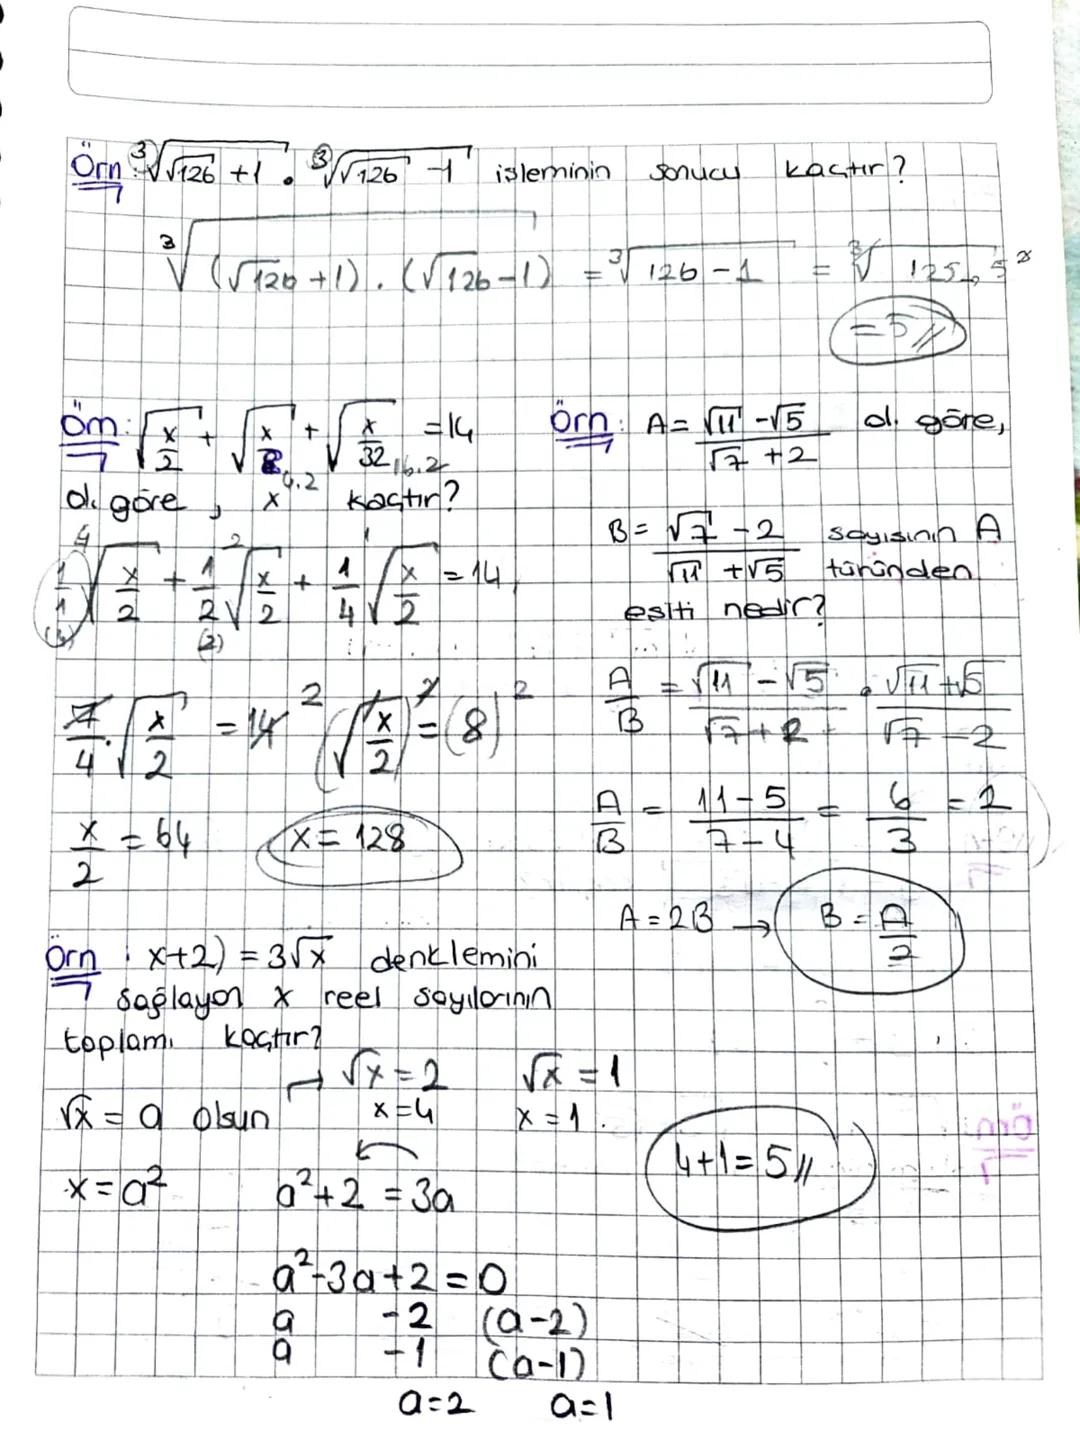 Örn: ∛(√126 + 1) . ∛(√126 - 1) işleminin sonucu kaçtır?
∛((√126 + 1) . (√126 - 1)) = ∛(126 - 1) = ∛125
= 5//
Örn: √(x/2) + √(x/8) + √(x/32) = 14
4.2 16.2
o. göre, x kaçtır?
1/1 √(x/2) + 1/2 √(x/2) + 1/4 √(x/2) = 14
(4) (2)
7/4 . √(x/2) = 14 2 (√(x/2))² = (8)²
x/2 = 64 x = 128
Örn: A = (√11 - √5)/(√7 + 2) o. göre,
B = (√7 - 2)/(√11 + √5) sayısının A
türünden
eşiti nedir?
A/B = (√11 - √5)/(√7 + 2) . (√11 + √5)/(√7 - 2)
A/B = (11 - 5)/(7 - 4) = 6/3 = 2
A = 2B → B = A/2
Örn: x+2) = 3√x denklemini
sağlayan x reel sayılarının
toplamı kaçtır?
→ √x = 2 √x = 1
√x = a olsun x = 4 x = 1
4+1 = 5//
x = a² a² + 2 = 3a
a² - 3a + 2 = 0
a -2 (a-2)
a -1 (a-1)
a = 2 a = 1